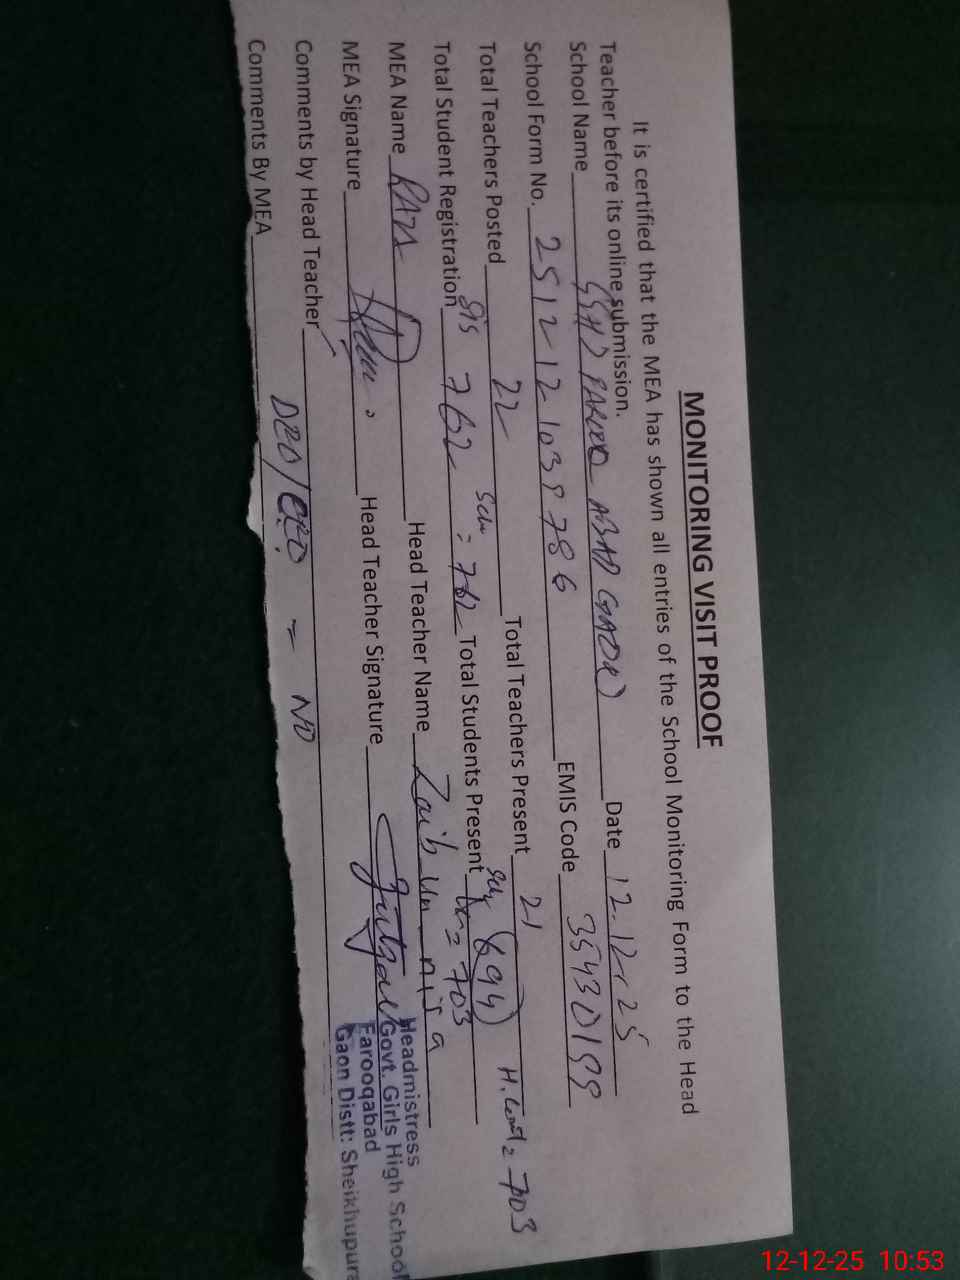 MONITORING VISIT PROOF
It is certified that the MEA has shown all entries of the School Monitoring Form to the Head
Teacher before its online submission.
School Name GGHS FAROOQ ABAD GAON Date 12-12-25
School Form No. 251212103978 6 EMIS Code 35430199
Total Teachers Posted 22 Total Teachers Present 21 H. Count = 703
Total Student Registration SIS 762 Sch: = 762 Total Students Present (694) = 703
MEA Name Head Teacher Name Zaib un nisa
MEA Signature Head Teacher Signature
Comments by Head Teacher
DEO/CEO = NO
Comments By MEA
Headmistress
Govt. Girls High School
Farooqabad
Gaon Distt: Sheikhupura
12-12-25 10:53